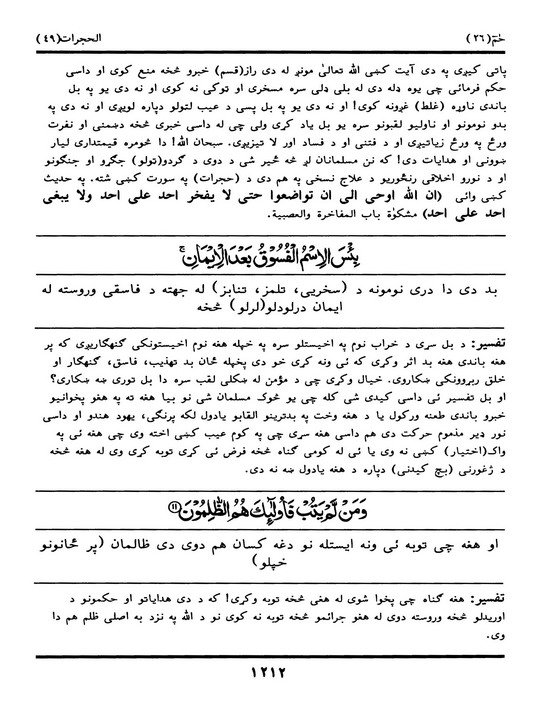 حٰمٓ (۲۶)
الحجرات (۴۹)
پاتی کیږی په دی آیت کښی الله تعالیٰ مونږ له دی راز(قسم) خبرو څخه منع کوی او داسی
حکم فرمائی چی یوه ډله دی له بلی ډلی سره مسخری او ټوکی نه کوی او نه دی یو په بل
باندی ناوړه (غلط) غږونه کوی! او نه دی یو په بل پسی د عیب لتولو دپاره لویږی او نه دی په
بدو نومونو او ناولیو لقبونو سره یو بل یاد کړی ولی چی له داسی خبری څخه دښمنی او نفرت
ورځ په ورځ زیاتیږی او د فتنی او د فساد اور لا تیزیږی. سبحان الله! دا څومره قیمتداری لیار
ښوونی او هدایات دی! که نن مسلمانان لږ څه ځیر شی د دوی د گردو(تولو) جگړو او جنگونو
او د نورو اخلاقی رنځوریو د علاج نسخی په هم دی د (حجرات) په سورت کښی شته. په حدیث
کښی وائی (ان الله اوحی الی ان تواضعوا حتی لا یفخر احد علی احد ولا یبغی
احد علی احد) مشکوٰة باب المفاخرة والعصبیة.
بِئْسَ الِاسْمُ الْفُسُوْقُ بَعْدَ الْاِيْمَانِ ۚ
بد دی دا دری نومونه د (سخریی، تلمز، تنابز) له جهته د فاسقی وروسته له
ایمان درلودلو(لرلو) څخه
تفسیر: د بل سړی د خراب نوم په اخیستلو سره په خپله هغه نوم اخیستونکی گنهگاریږی که پر
هغه باندی هغه بد اثر وکړی که ئی ونه کړی خو دی پخپله ځان بد تهذیب، فاسق، گنهگار او
خلق ربړوونکی ښکاروی. خیال وکړی چی د مؤمن له ښکلی لقب سره دا بل توری ښه ښکاری؟
او بل تفسیر ئی داسی کیدی شی کله چی یو څوک مسلمان شی نو بیا هغه ته په هغو پخوانیو
خبرو باندی طعنه ورکول یا د هغه وخت په بدترینو القابو یادول لکه پرنگی، یهود هندو او داسی
نور ډیر مذموم حرکت دی هم داسی هغه سړی چی په کوم عیب کښی اخته وی چی هغه ئی په
واک(اختیار) کښی نه وی یا ئی له کومی گناه څخه فرض ئی کړی توبه کړی وی له هغه څخه
د ژغورنی (بچ کیدنی) دپاره د هغه یادول ښه نه دی.
وَمَنْ لَّمْ يَتُبْ فَاُولٰٓئِكَ هُمُ الظّٰلِمُوْنَ ۝۱۱
او هغه چی توبه ئی ونه ایستله نو دغه کسان هم دوی دی ظالمان (پر ځانونو
خپلو)
تفسیر: هغه گناه چی پخوا شوی له هغی څخه توبه وکړی! که د دی هدایاتو او حکمونو د
اوریدلو څخه وروسته دوی له هغو جرائمو څخه توبه نه کوی نو د الله په نزد به اصلی ظلم هم دا
وی.
۱۲۱۲